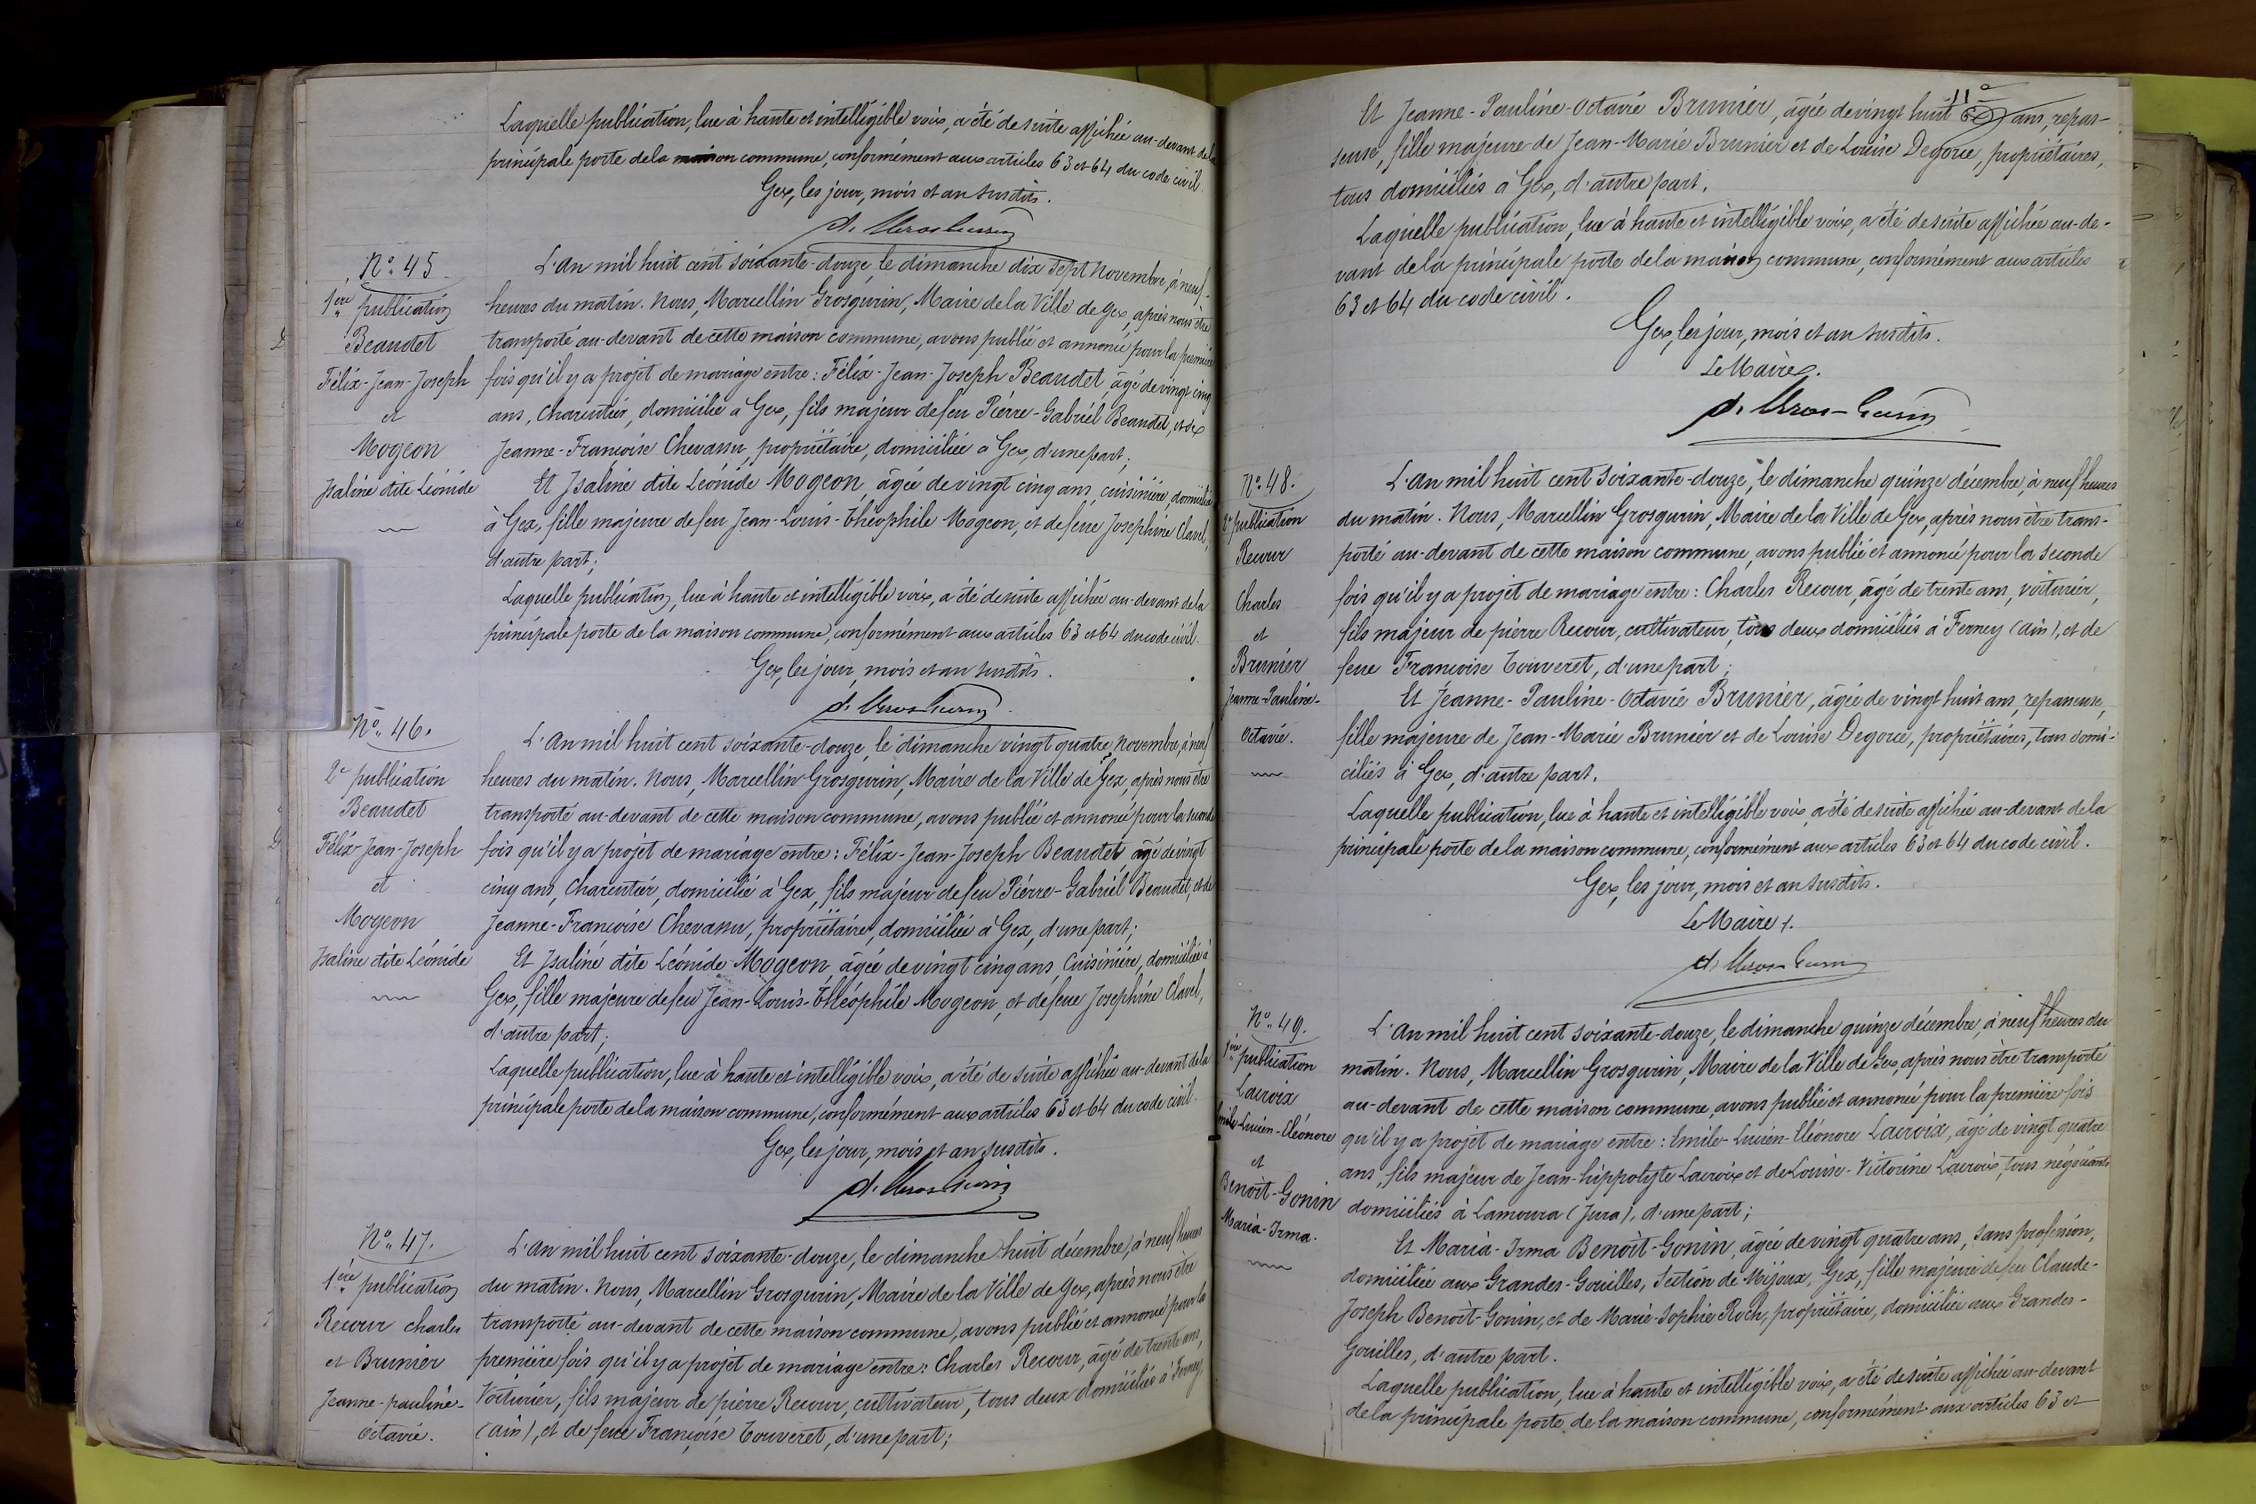 Laquelle publication, lue à haute et intelligible voix, a été de suite affichée au-devant de la
principale porte de la maison commune, conformément aux articles 63 et 64 du code civil.
Gex, les jour, mois et an susdits.
N°. 45
1ère publication
Beaudet
Félix-Jean-Joseph
et
Mogeon
Isaline dite Léonide
L'An mil huit cent soixante-douze, le dimanche dix sept Novembre, à neuf
heures du matin. Nous, Marcellin Grosgurin, Maire de la Ville de Gex, après nous être
transporté au-devant de cette maison commune, avons publié et annoncé pour la première
fois qu'il y a projet de mariage entre : Félix-Jean-Joseph Beaudet, âgé de vingt cinq
ans, Charentier, domicilié à Gex, fils majeur de feu Pierre-Gabriel Beaudet, et de
Jeanne-Françoise Chevassu, propriétaire, domiciliée à Gex, d'une part;
Et Isaline dite Léonide Mogeon, âgée de vingt cinq ans, cuisinière, domiciliée
à Gex, fille majeure de feu Jean-Louis-Théophile Mogeon, et de feue Joséphine Clavel,
d'autre part;
Laquelle publication, lue à haute et intelligible voix, a été de suite affichée au-devant de la
principale porte de la maison commune, conformément aux articles 63 et 64 du code civil.
Gex, les jour, mois et an susdits.
N°. 46.
2e publication
Beaudet
Félix-Jean-Joseph
et
Mogeon
Isaline dite Léonide
L'An mil huit cent soixante-douze, le dimanche vingt quatre Novembre, à neuf
heures du matin. Nous, Marcellin Grosgurin, Maire de la Ville de Gex, après nous être
transporté au-devant de cette maison commune, avons publié et annoncé pour la seconde
fois qu'il y a projet de mariage entre : Félix-Jean-Joseph Beaudet âgé de vingt
cinq ans, Charentier, domicilié à Gex, fils majeur de feu Pierre-Gabriel Beaudet, et de
Jeanne-Françoise Chevassu, propriétaire, domiciliée à Gex, d'une part;
Et Isaline dite Léonide Mogeon, âgée de vingt cinq ans, Cuisinière, domiciliée à
Gex, fille majeure de feu Jean-Louis-Théophile Mogeon, et de feue Joséphine Clavel,
d'autre part;
Laquelle publication, lue à haute et intelligible voix, a été de suite affichée au-devant de la
principale porte de la maison commune, conformément aux articles 63 et 64 du code civil.
Gex, les jour, mois et an susdits.
N°. 47.
1ère publication
Recour Charles
et Brunier
Jeanne-pauline-
octavie.
L'An mil huit cent soixante-douze, le dimanche huit décembre, à neuf heures
du matin. Nous, Marcellin Grosgurin, Maire de la Ville de Gex, après nous être
transporté au-devant de cette maison commune, avons publié et annoncé pour la
première fois qu'il y a projet de mariage entre : Charles Recour, âgé de trente ans,
Voiturier, fils majeur de pierre Recour, cultivateur, tous deux domiciliés à Ferney
(Ain), et de feue Françoise Touveret, d'une part;
11e
Et Jeanne-Pauline-Octavie Brunier, âgée de vingt huit ans, repas-
seuse, fille majeure de Jean-Marie Brunier et de Louise Degorce, propriétaires,
tous domiciliés à Gex, d'autre part.
Laquelle publication, lue à haute et intelligible voix, a été de suite affichée au-de-
vant de la principale porte de la maison commune, conformément aux articles
63 et 64 du code civil.
Gex, les jour, mois et an susdits.
Le Maire.
N°. 48.
2e publication
Recour
Charles
et
Brunier
Jeanne-Pauline-
Octavie.
L'An mil huit cent soixante-douze, le dimanche quinze décembre, à neuf heures
du matin. Nous, Marcellin Grosgurin, Maire de la Ville de Gex, après nous être trans-
porté au-devant de cette maison commune, avons publié et annoncé pour la seconde
fois qu'il y a projet de mariage entre : Charles Recour, âgé de trente ans, voiturier,
fils majeur de pierre Recour, cultivateur, tous deux domiciliés à Ferney (Ain), et de
feue Françoise Touveret, d'une part;
Et Jeanne-Pauline-Octavie Brunier, âgée de vingt huit ans, repasseuse,
fille majeure de Jean-Marie Brunier et de Louise Degorce, propriétaires, tous domi-
ciliés à Gex, d'autre part.
Laquelle publication, lue à haute et intelligible voix, a été de suite affichée au-devant de la
principale porte de la maison commune, conformément aux articles 63 et 64 du code civil.
Gex, les jour, mois et an susdits.
Le Maire.
N°. 49.
1ère publication
Lacroix
Emile-Lucien-Eléonore
et
Benoit-Gonin
Maria-Irma.
L'An mil huit cent soixante-douze, le dimanche quinze décembre, à neuf heures du
matin. Nous, Marcellin Grosgurin, Maire de la Ville de Gex, après nous être transporté
au-devant de cette maison commune, avons publié et annoncé pour la première fois
qu'il y a projet de mariage entre : Emile-Lucien-Eléonore Lacroix, âgé de vingt quatre
ans, fils majeur de Jean-hippolyte Lacroix et de Louise-Victorine Lacroix, tous négociants
domiciliés à Lamoura (Jura), d'une part;
Et Maria-Irma Benoit-Gonin, âgée de vingt quatre ans, sans profession,
domiciliée aux Grandes-Gouilles, Section de Mijoux, Gex, fille majeure de feu Claude-
Joseph Benoit-Gonin, et de Marie-Sophie Roch, propriétaire, domiciliée aux Grandes-
Gouilles, d'autre part.
Laquelle publication, lue à haute et intelligible voix, a été de suite affichée au-devant
de la principale porte de la maison commune, conformément aux articles 63 et